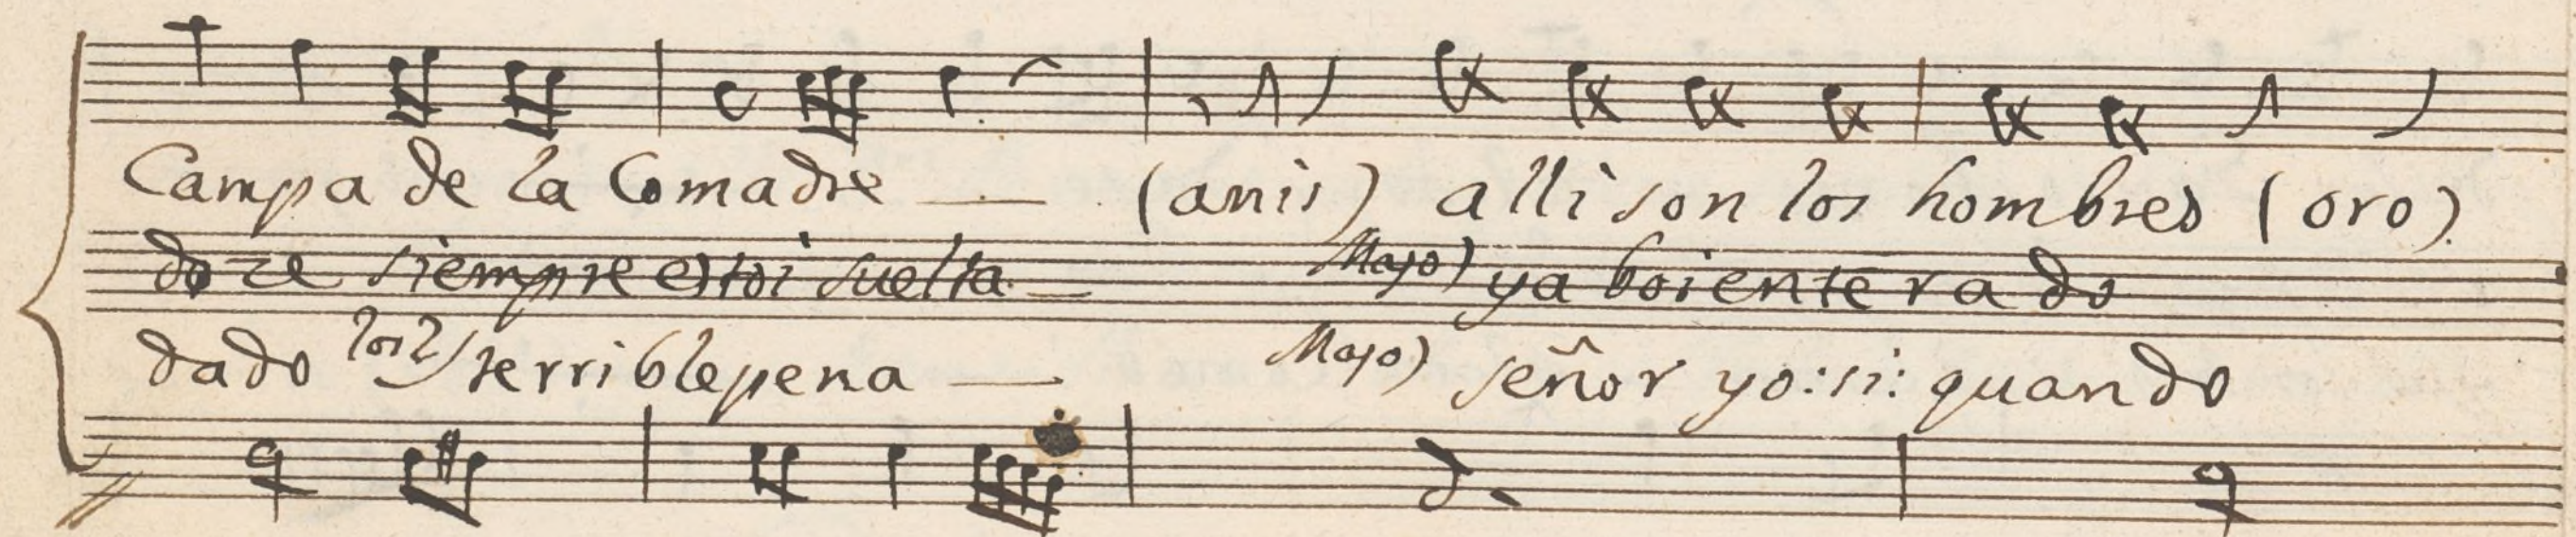 Campa de la Comadre — (anis) alli son los hombres (oro)
doze siempre estoi suelta — Majo) ya boi enterado
dado los 2) terrible pena — Majo) señor yo: si: quando